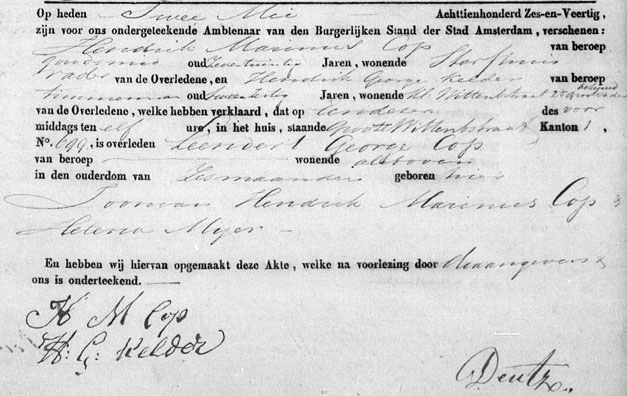 Op heden Twee Mei Achttienhonderd Zes-en-Veertig,
zijn voor ons ondergeteekende Ambtenaar van den Burgerlijken Stand der Stad Amsterdam, verschenen:
Hendrik Marinus Cop van beroep
oud Jaren, wonende Sterfhuis
Vader van de Overledene, en Hendrik George Kelder van beroep
timmerman oud Jaren, wonende Kl. Wittenstraat 25 bekend
van de Overledene, welke hebben verklaard, dat op des voor
middags ten elf ure, in het huis, staande Groote Wittenbstraat Kanton 1,
No. 699, is overleden Leendert George Cop
van beroep — wonende alsboven
in den ouderdom van Zes maanden geboren hier
Zoon van Hendrik Marinus Cop &
Helena Mijer —
En hebben wij hiervan opgemaakt deze Akte, welke na voorlezing door de aangevers &
ons is onderteekend.
H M Cop
H: G: Kelder
Deutz.